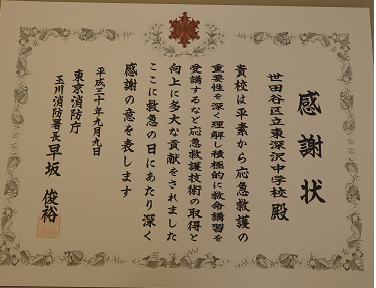 感謝状
世田谷区立東深沢中学校 殿
貴校は平素から応急救護の
重要性を深く理解し積極的に救命講習を
受講するなど応急救護技術の取得と
向上に多大な貢献をされました
ここに救急の日にあたり深く
感謝の意を表します
平成三十年九月九日
東京消防庁
玉川消防署長 早坂 俊裕